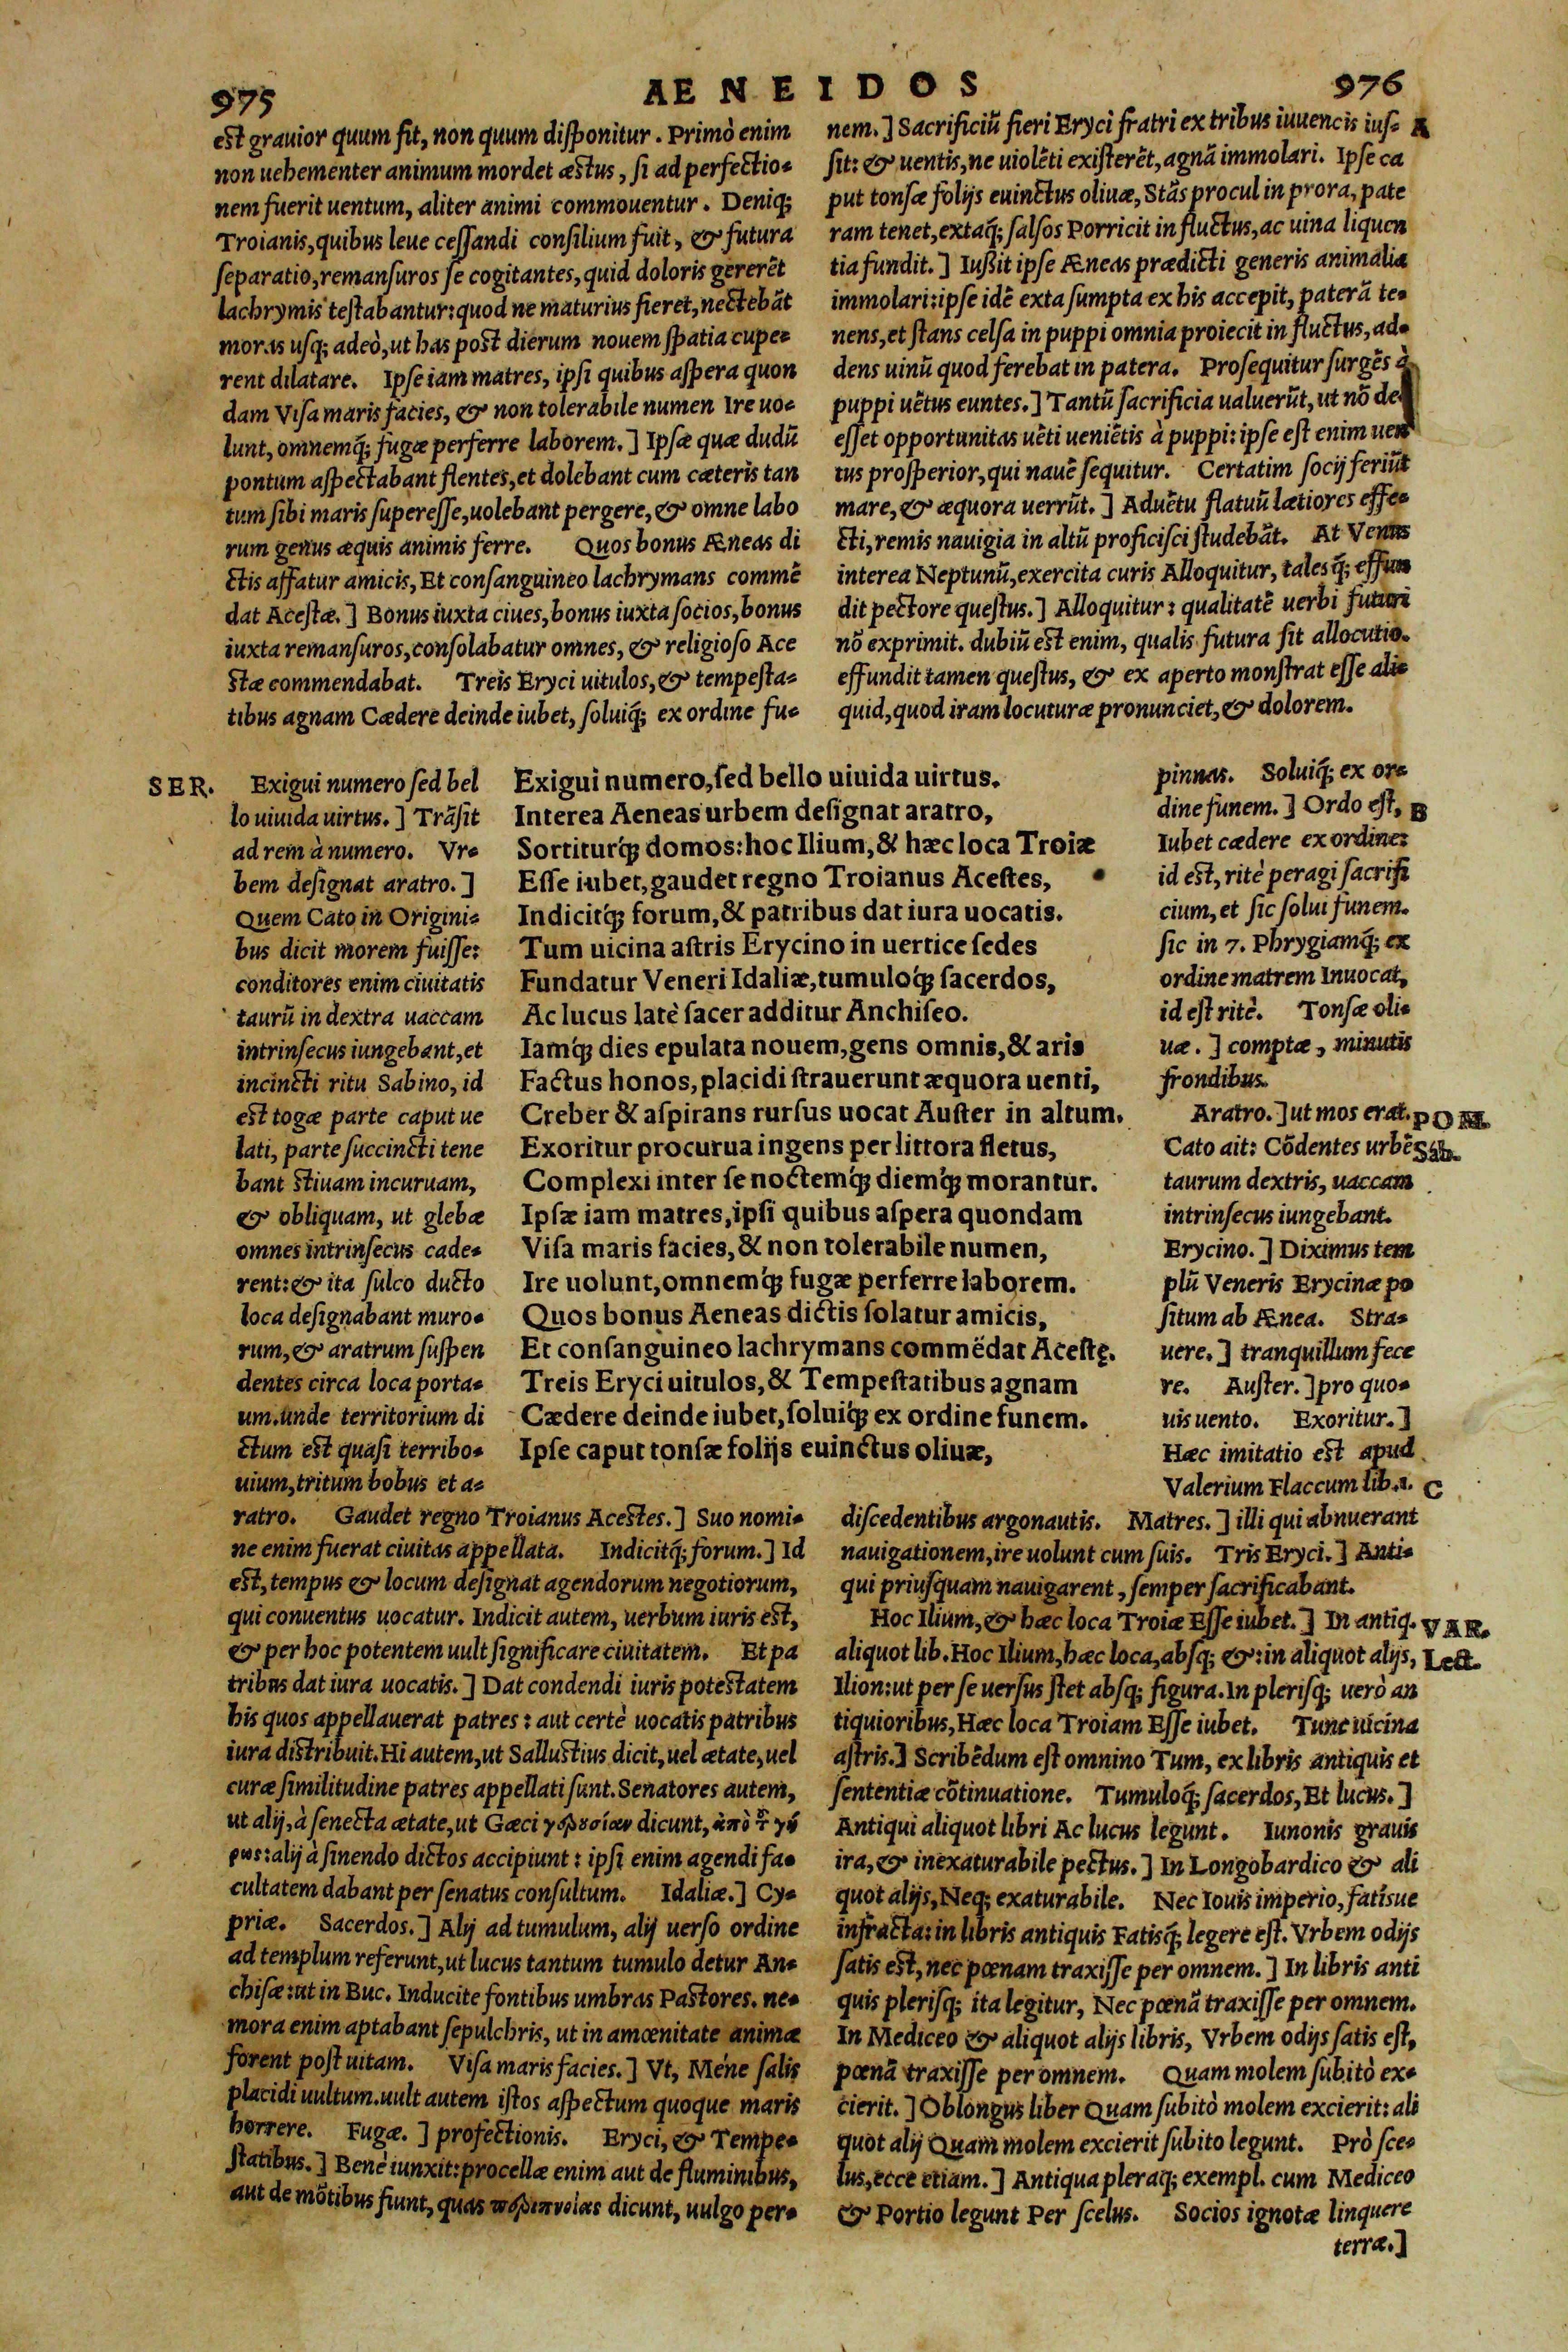 975
AENEIDOS
976
est grauior quum fit, non quum disponitur. Primò enim
non uehementer animum mordet æstus, si ad perfectio-
nem fuerit uentum, aliter animi commouentur. Deniq;
Troianis, quibus leue cessandi consilium fuit, & futura
separatio, remansuros se cogitantes, quid doloris gererẽt
lachrymis testabantur: quod ne maturius fieret, nectebãt
moras usq; adeò, ut has post dierum nouem spatia cupe-
rent dilatare. Ipse iam matres, ipsi quibus aspera quon
dam Visa maris facies, & non tolerabile numen Ire uo-
lunt, omnemq́; fugæ perferre laborem.] Ipsæ quæ dudũ
pontum aspectabant flentes, et dolebant cum cæteris tan
tum sibi maris superesse, uolebant pergere, & omne labo
rum genus æquis animis ferre. Quos bonus Æneas di
ctis affatur amicis, Et consanguineo lachrymans commẽ
dat Acestæ.] Bonus iuxta ciues, bonus iuxta socios, bonus
iuxta remansuros, consolabatur omnes, & religioso Ace
stæ commendabat. Treis Eryci uitulos, & tempesta-
tibus agnam Cædere deinde iubet, soluiq́; ex ordine fu-
nem.] Sacrificiũ fieri Eryci fratri ex tribus iuuencis ius- A
sit: & uentis, ne uiolẽti existerẽt, agnã immolari. Ipse ca
put tonsæ folijs euinctus oliuæ, Stãs procul in prora, pate
ram tenet, extaq́; salsos Porricit in fluctus, ac uina liquen
tia fundit.] Iußit ipse Æneas prædicti generis animalia
immolari: ipse idẽ exta sumpta ex his accepit, paterã te-
nens, et stans celsa in puppi omnia proiecit in fluctus, ad-
dens uinũ quod ferebat in patera. Prosequitur surgẽs à
puppi uẽtus euntes.] Tantũ sacrificia ualuerũt, ut nõ de
esset opportunitas uẽti ueniẽtis à puppi: ipse est enim uen
tus prosperior, qui nauẽ sequitur. Certatim socij feriũt
mare, & æquora uerrũt.] Aduẽtu flatuũ lætiores effe-
cti, remis nauigia in altũ proficisci studebãt. At Venus
interea Neptunũ, exercita curis Alloquitur, talesq́; effun
dit pectore questus.] Alloquitur: qualitatẽ uerbi futuri
nõ exprimit. dubiũ est enim, qualis futura sit allocutio.
effundit tamen questus, & ex aperto monstrat esse ali-
quid, quod iram locuturæ pronunciet, & dolorem.
SER. Exigui numero sed bel
lo uiuida uirtus.] Trãsit
ad rem à numero. Vr-
bem designat aratro.]
Quem Cato in Origini-
bus dicit morem fuisse:
conditores enim ciuitatis
taurũ in dextra uaccam
intrinsecus iungebant, et
incincti ritu Sabino, id
est togæ parte caput ue
lati, parte succincti tene
bant stiuam incuruam,
& obliquam, ut glebæ
omnes intrinsecus cade-
rent: & ita sulco ducto
loca designabant muro-
rum, & aratrum suspen
dentes circa loca porta-
um. unde territorium di
ctum est quasi terribo-
uium, tritum bobus et a-
ratro. Gaudet regno Troianus Acestes.] Suo nomi-
ne enim fuerat ciuitas appellata. Indicitq́; forum.] Id
est, tempus & locum designat agendorum negotiorum,
qui conuentus uocatur. Indicit autem, uerbum iuris est,
& per hoc potentem uult significare ciuitatem. Et pa
tribus dat iura uocatis.] Dat condendi iuris potestatem
his quos appellauerat patres: aut certè uocatis patribus
iura distribuit. Hi autem, ut Sallustius dicit, uel ætate, uel
curæ similitudine patres appellati sunt. Senatores autem,
ut alij, à senecta ætate, ut Gæci γερουσίαν dicunt, ἀπὸ τ γή
ρως: alij à sinendo dictos accipiunt: ipsi enim agendi fa-
cultatem dabant per senatus consultum. Idaliæ.] Cy-
priæ. Sacerdos.] Alij ad tumulum, alij uerso ordine
ad templum referunt, ut lucus tantum tumulo detur An-
chisæ: ut in Buc. Inducite fontibus umbras Pastores. ne-
mora enim aptabant sepulchris, ut in amœnitate animæ
forent post uitam. Visa maris facies.] Vt, Méne salis
placidi uultum. uult autem istos aspectum quoque maris
horrere. Fugæ.] profectionis. Eryci, & Tempe-
statibus.] Benè iunxit: procellæ enim aut de fluminibus,
aut de mõtibus fiunt, quas περιπνοίας dicunt, uulgo per-
Exigui numero, sed bello uiuida uirtus.
Interea Aeneas urbem designat aratro,
Sortiturq́; domos: hoc Ilium, & hæc loca Troiæ
Esse iubet, gaudet regno Troianus Acestes,
Indicitq́; forum, & patribus dat iura uocatis.
Tum uicina astris Erycino in uertice sedes
Fundatur Veneri Idaliæ, tumuloq́; sacerdos,
Ac lucus latè sacer additur Anchiseo.
Iamq́; dies epulata nouem, gens omnis, & aris
Factus honos, placidi strauerunt æquora uenti,
Creber & aspirans rursus uocat Auster in altum.
Exoritur procurua ingens per littora fletus,
Complexi inter se noctemq́; diemq́; morantur.
Ipsæ iam matres, ipsi quibus aspera quondam
Visa maris facies, & non tolerabile numen,
Ire uolunt, omnemq́; fugæ perferre laborem.
Quos bonus Aeneas dictis solatur amicis,
Et consanguineo lachrymans commẽdat Acestę.
Treis Eryci uitulos, & Tempestatibus agnam
Cædere deinde iubet, soluiq́; ex ordine funem.
Ipse caput tonsæ folijs euinctus oliuæ,
pinnas. Soluiq́; ex or-
dine funem.] Ordo est, B
Iubet cædere ex ordine:
id est, ritè peragi sacrifi
cium, et sic solui funem.
sic in 7. Phrygiamq́; ex
ordine matrem Inuocat,
id est ritè. Tonsæ oli-
uæ.] comptæ, minutis
frondibus.
Aratro.] ut mos erat. POM.
Cato ait: Cõdentes urbẽ Sab.
taurum dextris, uaccam
intrinsecus iungebant.
Erycino.] Diximus tem
plũ Veneris Erycinæ po
situm ab Ænea. Stra-
uere.] tranquillum fece
re. Auster.] pro quo-
uis uento. Exoritur.]
Hæc imitatio est apud
Valerium Flaccum lib.1. C
discedentibus argonautis. Matres.] illi qui abnuerant
nauigationem, ire uolunt cum suis. Tris Eryci.] Anti-
qui priusquam nauigarent, semper sacrificabant.
Hoc Ilium, & hæc loca Troiæ Esse iubet.] In antiq. VAR.
aliquot lib. Hoc Ilium, hæc loca, absq; &: in aliquot alijs, Lect.
Ilion: ut per se uersus stet absq; figura. In plerisq; uerò an
tiquioribus, Hæc loca Troiam Esse iubet. Tunc uicina
astris.] Scribẽdum est omnino Tum, ex libris antiquis et
sententiæ cõtinuatione. Tumuloq́; sacerdos, Et lucus.]
Antiqui aliquot libri Ac lucus legunt. Iunonis grauis
ira, & inexaturabile pectus.] In Longobardico & ali
quot alijs, Neq; exaturabile. Nec Iouis imperio, fatísue
infracta: in libris antiquis Fatisq́; legere est. Vrbem odijs
satis est, nec pœnam traxisse per omnem.] In libris anti
quis plerisq; ita legitur, Nec pœnã traxisse per omnem.
In Mediceo & aliquot alijs libris, Vrbem odijs satis est,
pœnã traxisse per omnem. Quam molem subitò ex-
cierit.] Oblongus liber Quam subitò molem excierit: ali
quot alij Quam molem excierit subito legunt. Prò sce-
lus, ecce etiam.] Antiqua pleraq; exempl. cum Mediceo
& Portio legunt Per scelus. Socios ignotæ linquere
terræ.]